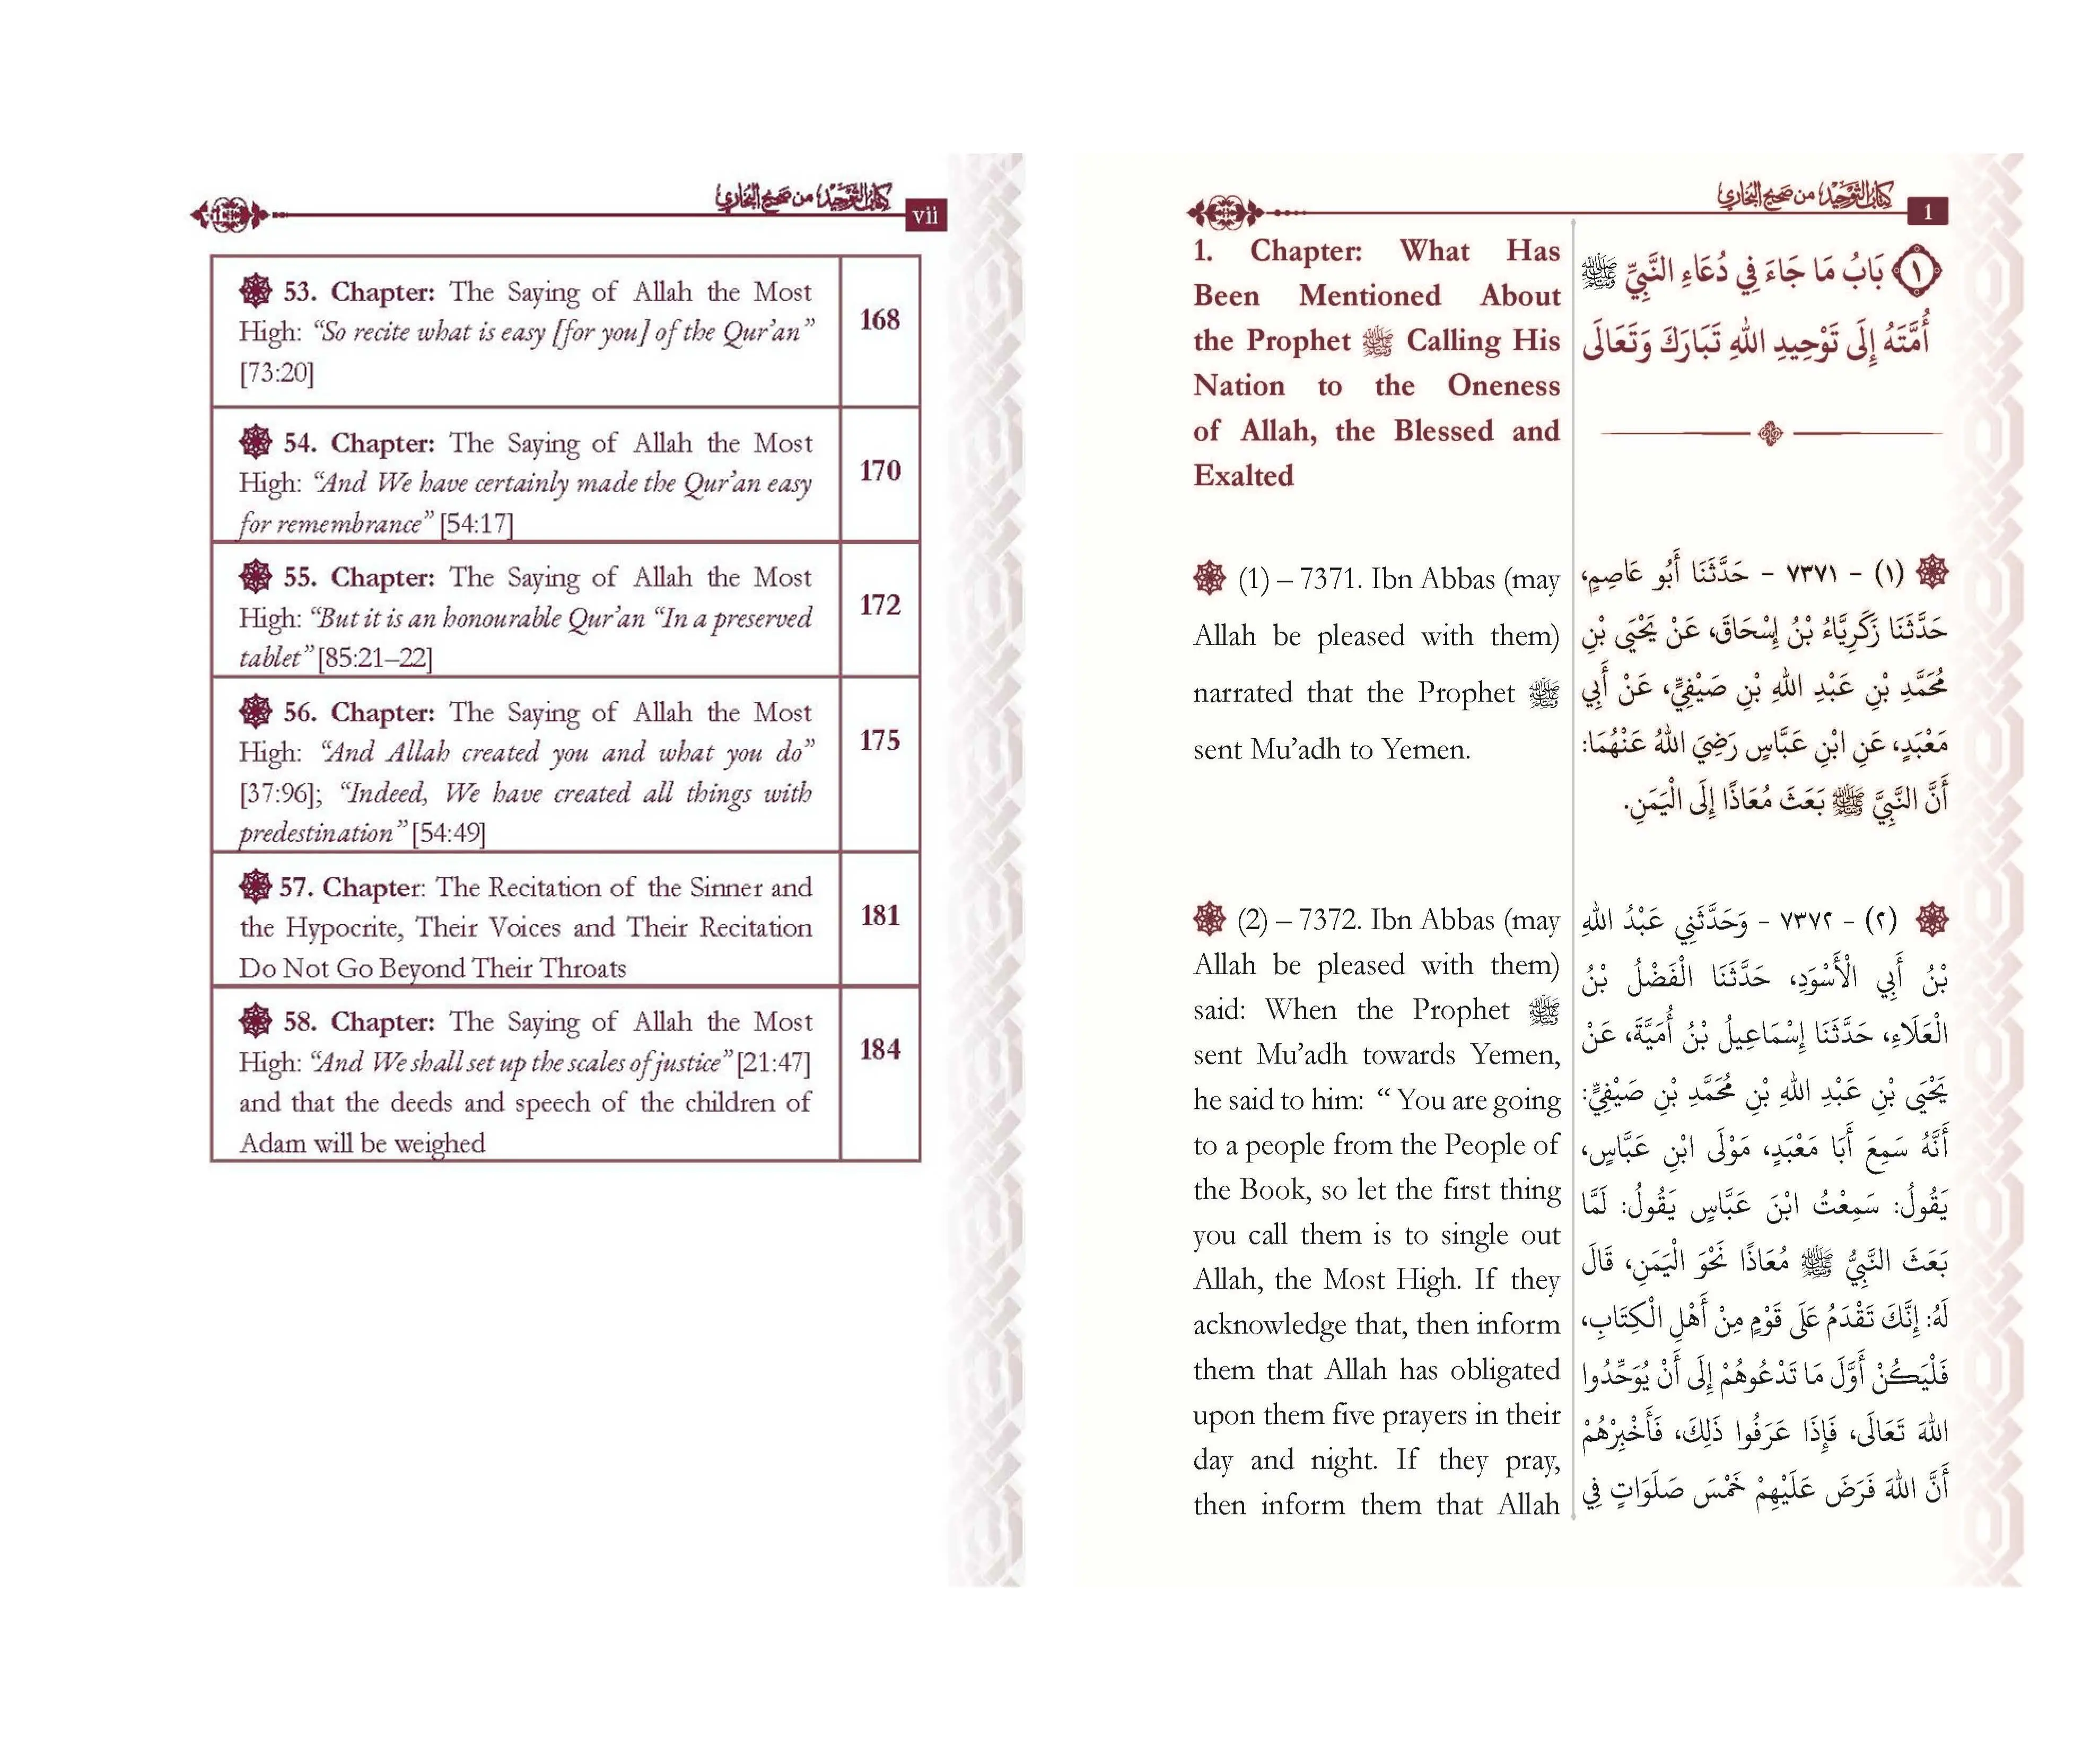 كتاب التوحيد من صحيح البخاري
vii
53. Chapter: The Saying of Allah the Most
High: “So recite what is easy [for you] of the Qur’an”
[73:20]
168
54. Chapter: The Saying of Allah the Most
High: “And We have certainly made the Qur’an easy
for remembrance” [54:17]
170
55. Chapter: The Saying of Allah the Most
High: “But it is an honourable Qur’an “In a preserved
tablet” [85:21–22]
172
56. Chapter: The Saying of Allah the Most
High: “And Allah created you and what you do”
[37:96]; “Indeed, We have created all things with
predestination” [54:49]
175
57. Chapter: The Recitation of the Sinner and
the Hypocrite, Their Voices and Their Recitation
Do Not Go Beyond Their Throats
181
58. Chapter: The Saying of Allah the Most
High: “And We shall set up the scales of justice” [21:47]
and that the deeds and speech of the children of
Adam will be weighed
184
كتاب التوحيد من صحيح البخاري
1
1. Chapter: What Has
Been Mentioned About
the Prophet ﷺ Calling His
Nation to the Oneness
of Allah, the Blessed and
Exalted
(1) – 7371. Ibn Abbas (may
Allah be pleased with them)
narrated that the Prophet ﷺ
sent Mu’adh to Yemen.
(2) – 7372. Ibn Abbas (may
Allah be pleased with them)
said: When the Prophet ﷺ
sent Mu’adh towards Yemen,
he said to him: “ You are going
to a people from the People of
the Book, so let the first thing
you call them is to single out
Allah, the Most High. If they
acknowledge that, then inform
them that Allah has obligated
upon them five prayers in their
day and night. If they pray,
then inform them that Allah
١ بَابُ مَا جَاءَ فِي دُعَاءِ النَّبِيِّ ﷺ
أُمَّتَهُ إِلَى تَوْحِيدِ اللهِ تَبَارَكَ وَتَعَالَى
(١) - ٧٣٧١ - حَدَّثَنَا أَبُو عَاصِمٍ،
حَدَّثَنَا زَكَرِيَّاءُ بْنُ إِسْحَاقَ، عَنْ يَحْيَى بْنِ
مُحَمَّدِ بْنِ عَبْدِ اللهِ بْنِ صَيْفِيٍّ، عَنْ أَبِي
مَعْبَدٍ، عَنِ ابْنِ عَبَّاسٍ رَضِيَ اللهُ عَنْهُمَا:
أَنَّ النَّبِيَّ ﷺ بَعَثَ مُعَاذًا إِلَى الْيَمَنِ.
(٢) - ٧٣٧٢ - وَحَدَّثَنِي عَبْدُ اللهِ
بْنُ أَبِي الْأَسْوَدِ، حَدَّثَنَا الْفَضْلُ بْنُ
الْعَلَاءِ، حَدَّثَنَا إِسْمَاعِيلُ بْنُ أُمَيَّةَ، عَنْ
يَحْيَى بْنِ عَبْدِ اللهِ بْنِ مُحَمَّدِ بْنِ صَيْفِيٍّ:
أَنَّهُ سَمِعَ أَبَا مَعْبَدٍ، مَوْلَى ابْنِ عَبَّاسٍ،
يَقُولُ: سَمِعْتُ ابْنَ عَبَّاسٍ يَقُولُ: لَمَّا
بَعَثَ النَّبِيُّ ﷺ مُعَاذًا نَحْوَ الْيَمَنِ، قَالَ
لَهُ: إِنَّكَ تَقْدَمُ عَلَى قَوْمٍ مِنْ أَهْلِ الْكِتَابِ،
فَلْيَكُنْ أَوَّلَ مَا تَدْعُوهُمْ إِلَى أَنْ يُوَحِّدُوا
اللهَ تَعَالَى، فَإِذَا عَرَفُوا ذَلِكَ، فَأَخْبِرْهُمْ
أَنَّ اللهَ فَرَضَ عَلَيْهِمْ خَمْسَ صَلَوَاتٍ فِي